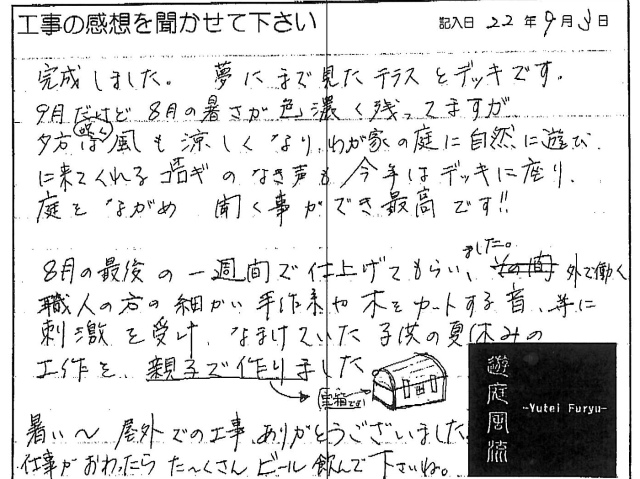 工事の感想を聞かせて下さい
記入日 22年9月3日
完成しました。 夢にまで見たテラスとデッキです。
9月だけど8月の暑さが色濃く残ってますが
夕方は吹く風も涼しくなり、わが家の庭に自然に遊び
に来てくれるコオロギのなき声も今年はデッキに座り、
庭をながめ 聞く事ができ最高です!!
8月の最後の一週間で仕上げてもらいました。外で働く
職人の方の細かい手作業や木をカットする音、
刺激を受け、なまけていた子供の夏休みの
工作を、親子で作りました
宝箱です
暑い〜屋外での工事ありがとうございました。
仕事がおわったらた〜くさんビール飲んで下さいね。
遊庭風流
-Yutei Furyu-